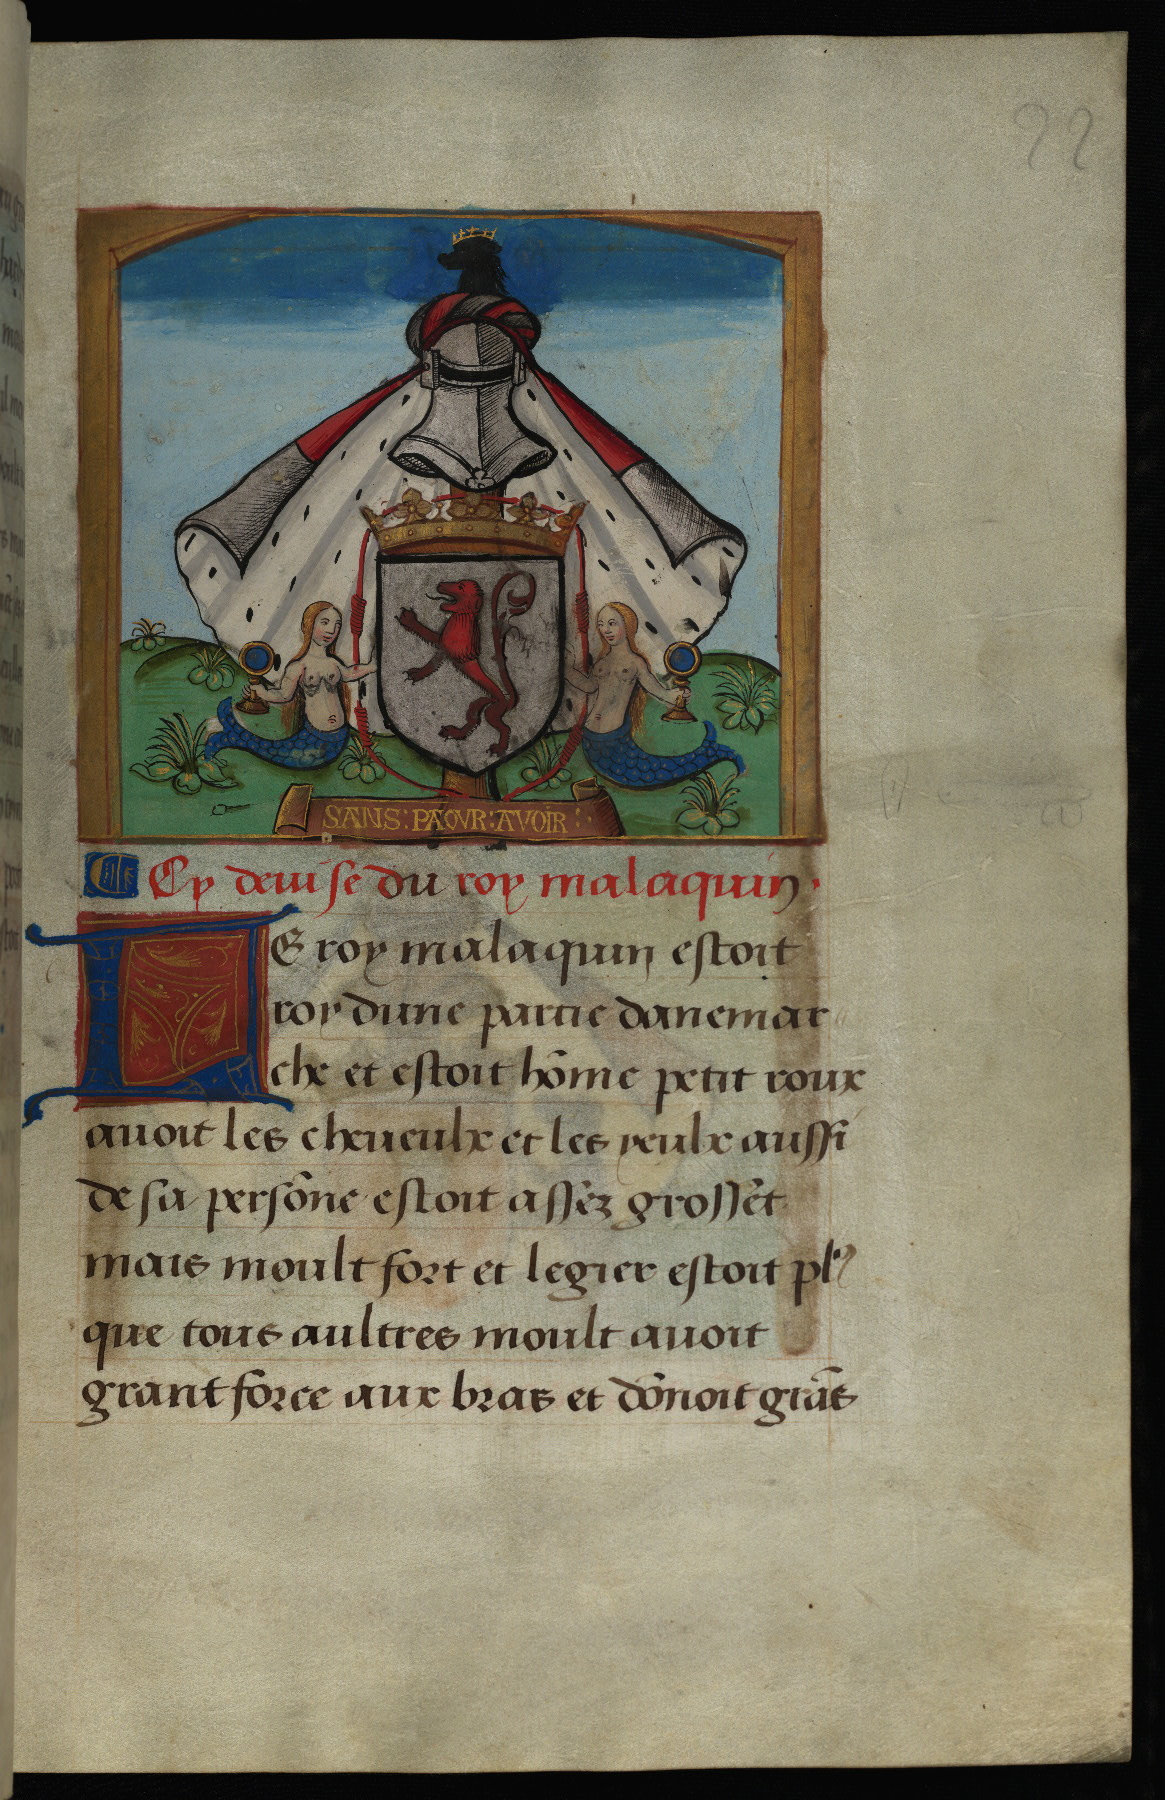 22
SANS : PAOVR : AVOIR :
Cy deuise du roy malaquin .
LE roy malaquin estoit
roy dune partie danemar
che et estoit hōme petit roux
auoit les cheueulx et les yeulx aussi
de sa persōne estoit assez grossēt
mais moult fort et legier estoit plꝰ
que tous aultres moult auoit
grant force aux bras et dōnoit grās